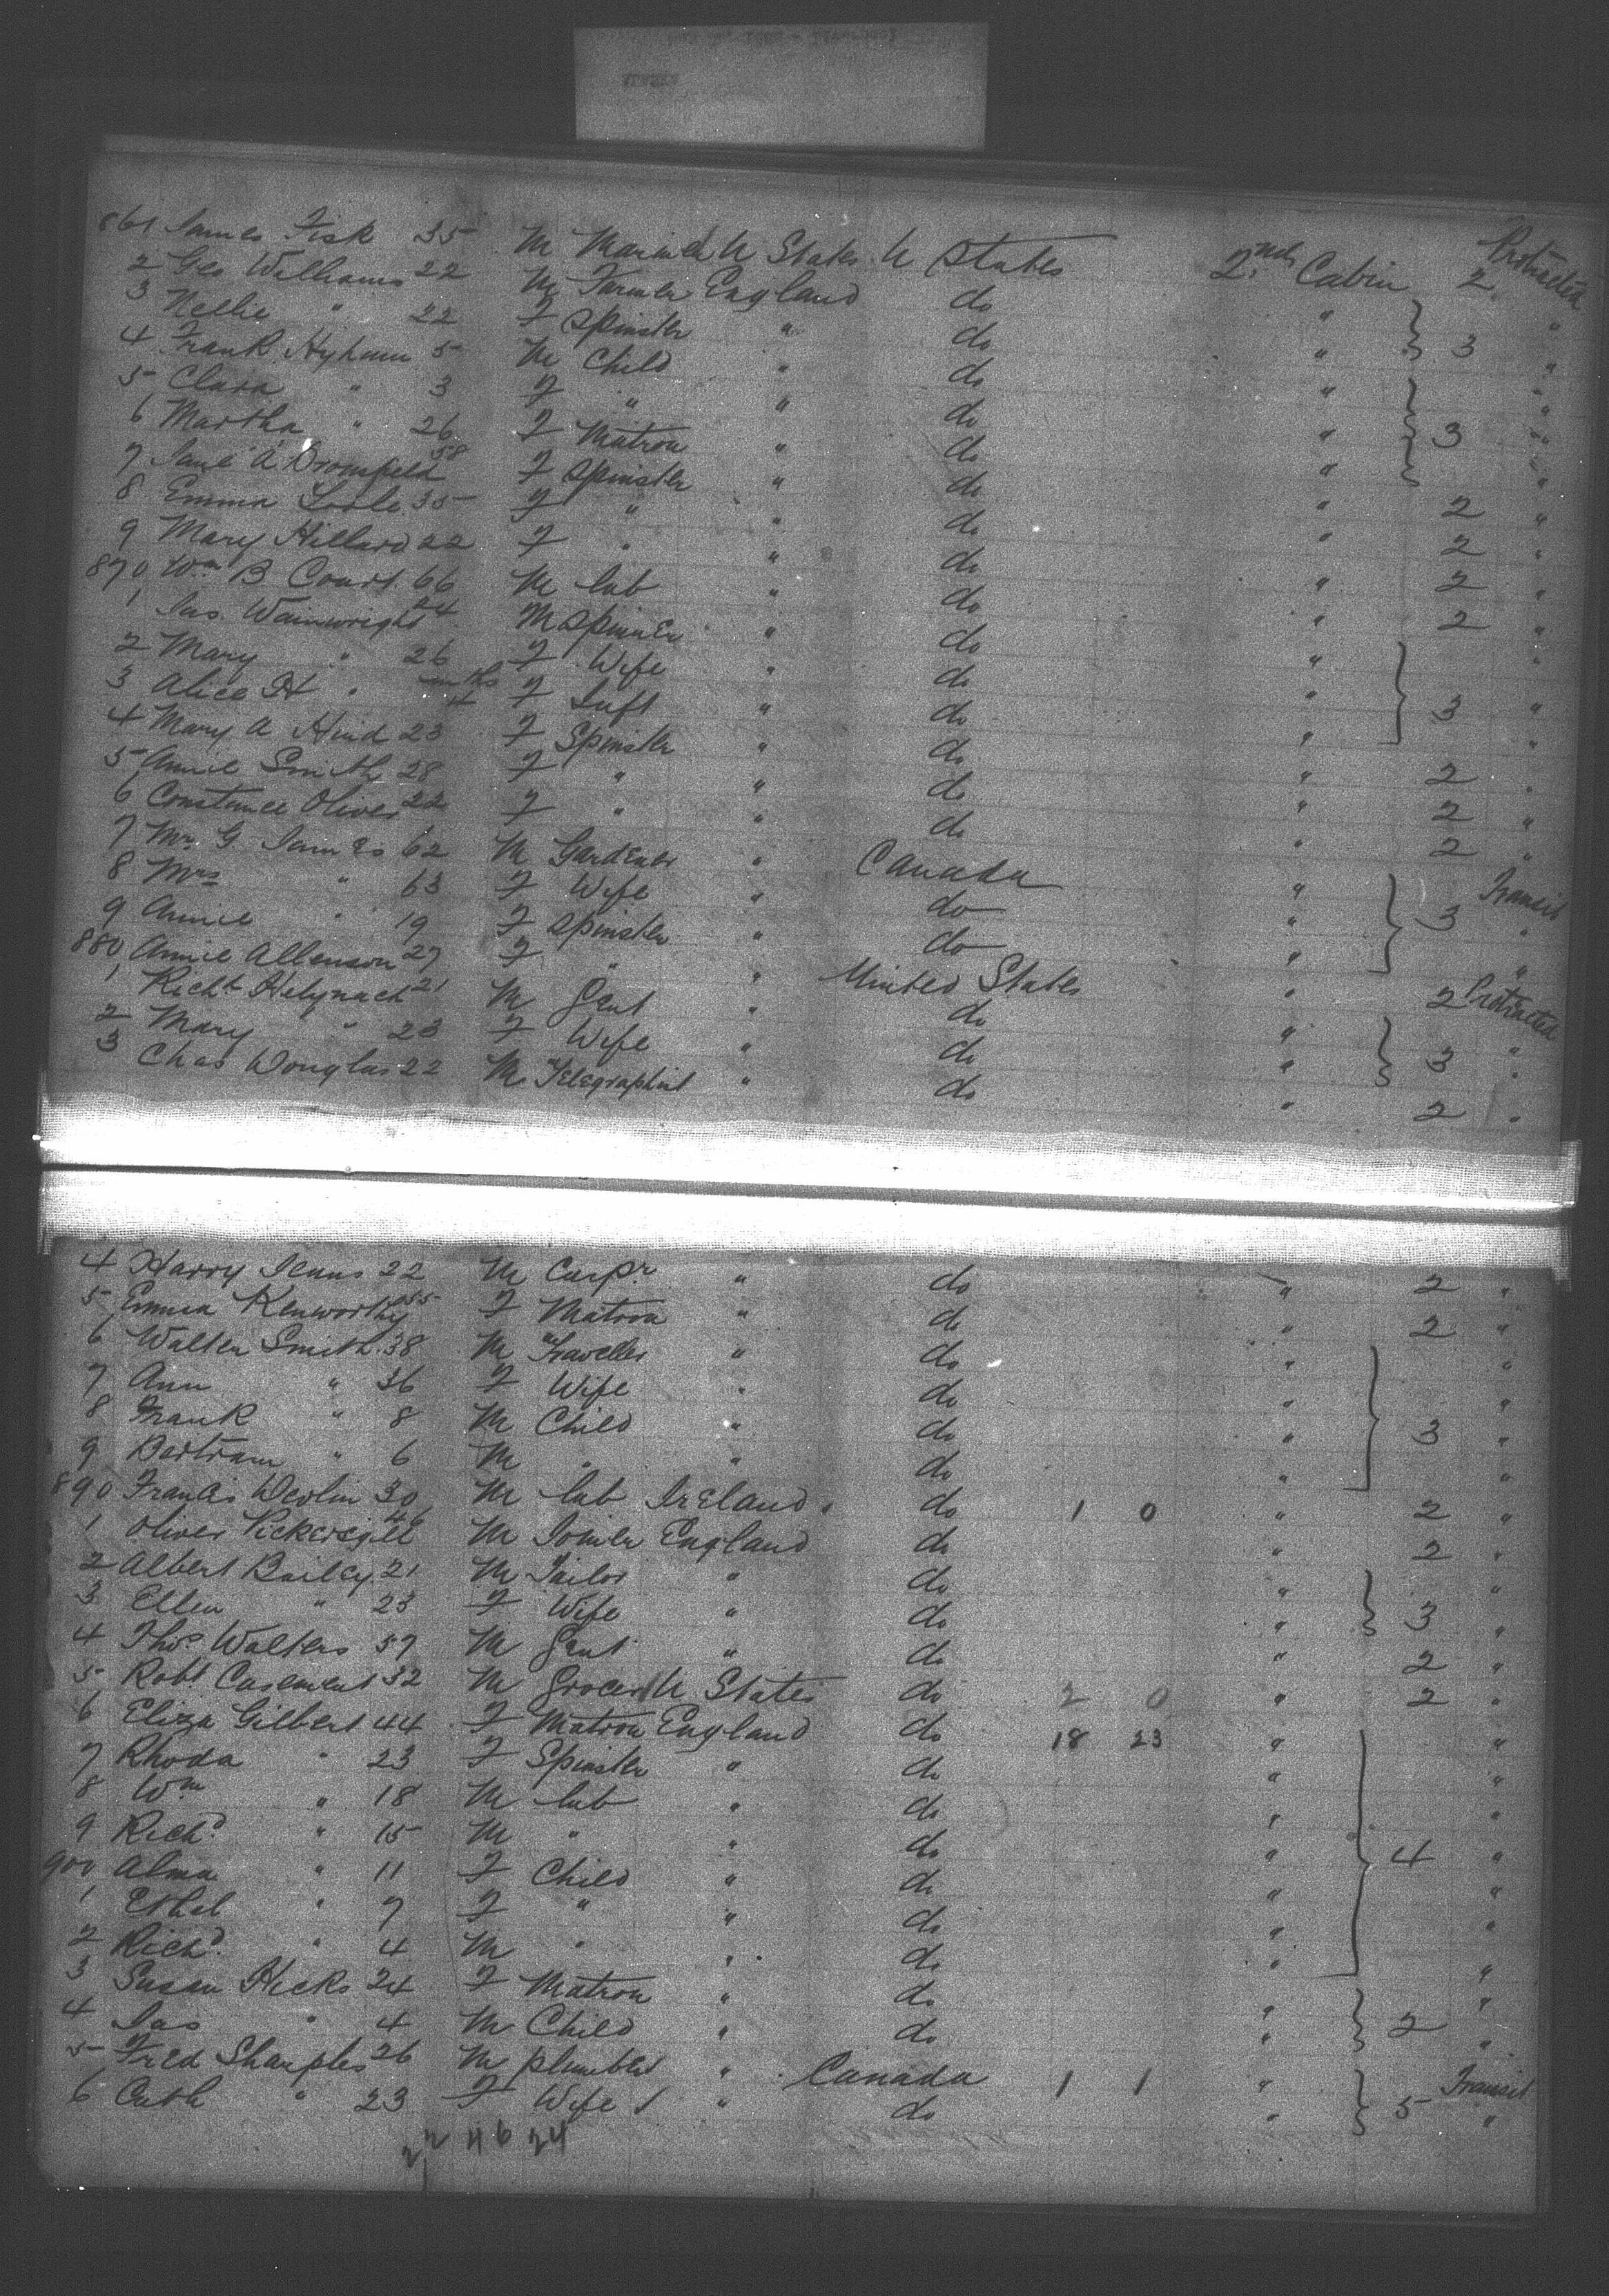 861 James Fisk 35 M Mariner U States U States 2nd Cabin 2 Protracted
2 Geo Williams 22 M Farmer England do " "
3 Nellie " 22 F Spinster " do " 3 "
4 Frank Hyham 5 M Child " do " "
5 Clara " 3 F " " do " 3 "
6 Martha " 26 F Matron " do " "
7 Jane A Bromfield 58 F Spinster " do " 2 "
8 Emma 35 F " " do " 2 "
9 Mary Hillard 22 F " " do " 2 "
870 Wm B Court 66 M Lab " do " 2 "
1 Jas. Wainwright 24 M Spinner " do " "
2 Mary " 26 F Wife " do " 3 "
3 Alice H " mths 4 F Inft " do " "
4 Mary A Hind 23 F Spinster " do " 2 "
5 Annie Smith 28 F " " do " 2 "
6 Constance Oliver 22 F " " do " 2 "
7 Mr. G. James 62 M Gardener " Canada " Transit
8 Mrs " 63 F Wife " do " 3 "
9 Annie " 19 F Spinster " do " "
880 Annie Allenson 27 F " " United States " 2 Protracted
1 Richt 21 M Gent " do " "
2 Mary " 23 F Wife " do " 3 "
3 Chas Douglas 22 M Telegraphist " do " 2 "
4 Harry Jenns 22 M Carpr " do " 2 "
5 Emma Kenworthy 55 F Matron " do " 2 "
6 Walter Smith 38 M Traveller " do " "
7 Ann " 36 F Wife " do " "
8 Frank " 8 M Child " do " 3 "
9 Bertram " 6 M " " do " "
890 Francis Devlin 30 M Lab Ireland do 1 0 " 2 "
1 Oliver Pickersgill 46 M Joiner England do " 2 "
2 Albert Bailey 21 M Tailor " do " "
3 Ellen " 23 F Wife " do " 3 "
4 Thos. Walters 57 M Gent " do " 2 "
5 Robt Casement 32 M Grocer U States do 2 0 " 2 "
6 Eliza Gilbert 44 F Matron England do 18 23 " "
7 Rhoda " 23 F Spinster " do " "
8 Wm " 18 M Lab " do " "
9 Richd. " 15 M " " do " 4 "
900 Alma " 11 F Child " do " "
1 Ethel " 7 F " " do " "
2 Richd. " 4 M " " do " "
3 Susan Hicks 24 F Matron " do " "
4 Jas " 4 M Child " do " 2 "
5 Fred Sharples 26 M Plumber " Canada 1 1 " Transit
6 Cath " 23 F Wife " do " 5 "
22 46 24